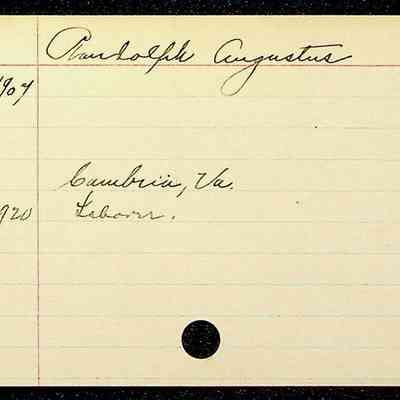 Randolph Augustus
1907
Cambria, Va.
920 Laborer.